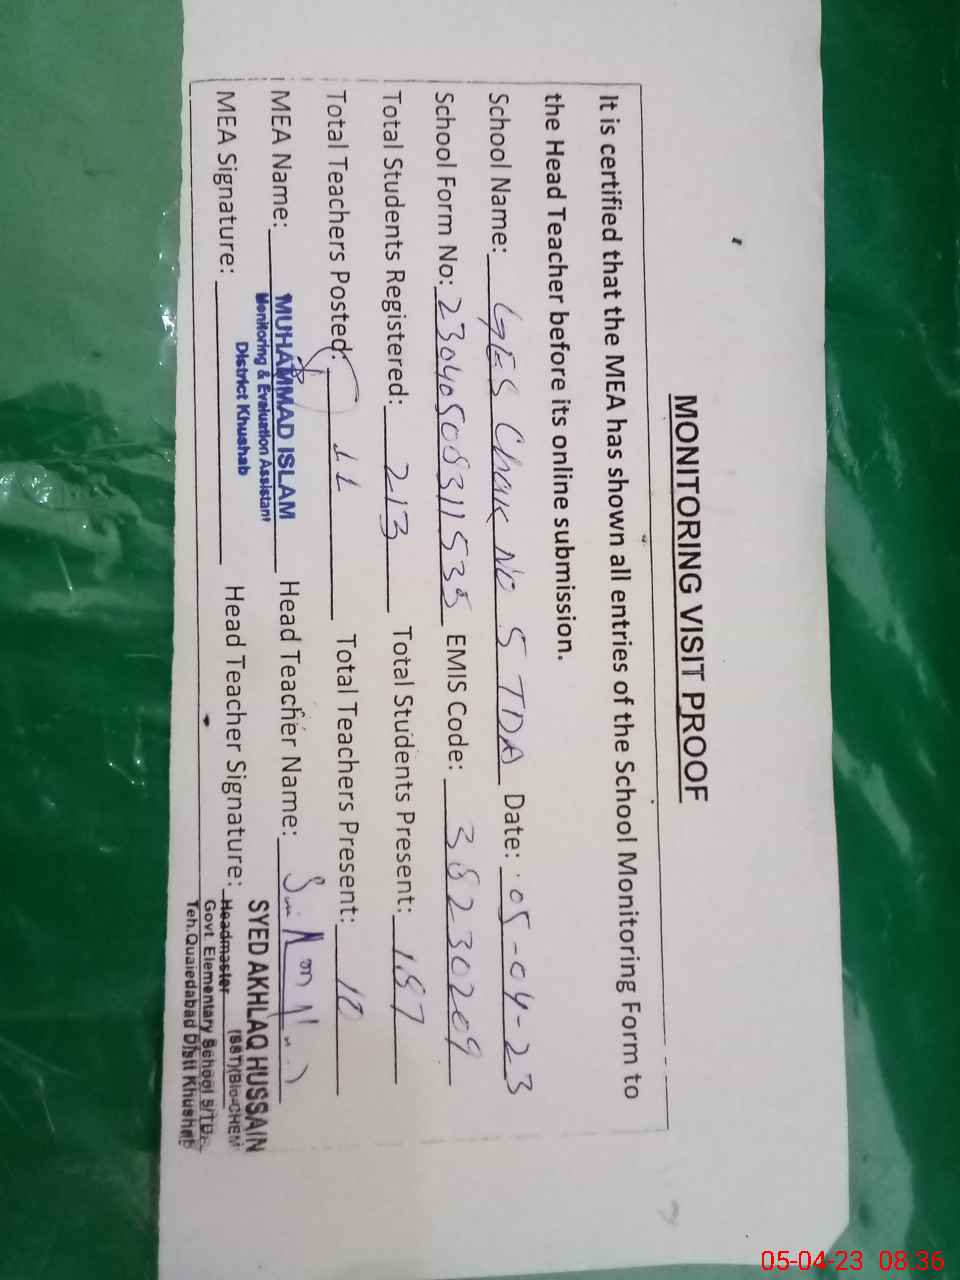 MONITORING VISIT PROOF
It is certified that the MEA has shown all entries of the School Monitoring Form to
the Head Teacher before its online submission.
School Name: GES Chak No 5 TDA Date: 05-04-23
School Form No: 23040508311535 EMIS Code: 38230209
Total Students Registered: 213 Total Students Present: 187
Total Teachers Posted: 11 Total Teachers Present: 10
MEA Name: MUHAMMAD ISLAM Head Teacher Name:
Monitoring & Evaluation Assistant
District Khushab
MEA Signature: Head Teacher Signature:
SYED AKHLAQ HUSSAIN
(SST)(Bio-CHEM
Headmaster
Govt. Elementary School 5/TDA
Teh.Quaiedabad Distt Khushab
05-04-23 08:36